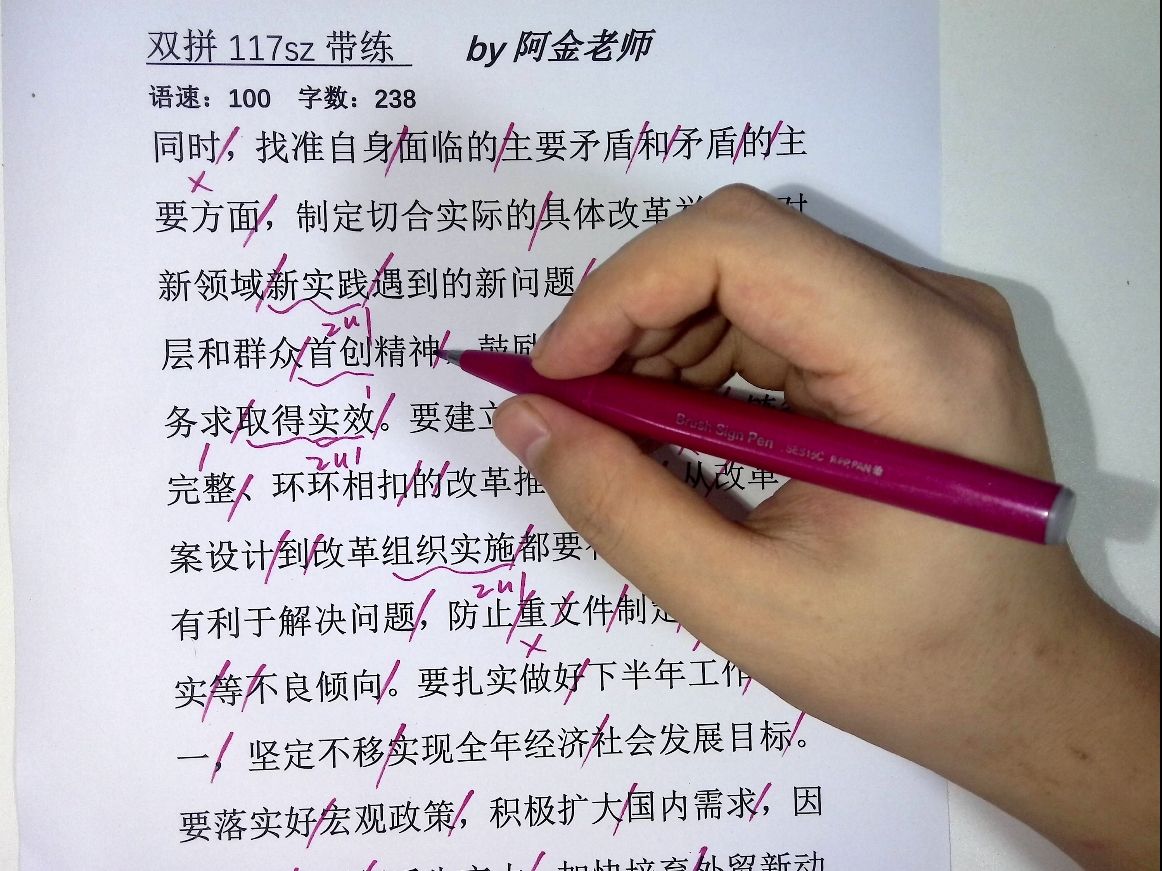 双拼 117sz 带练 by 阿金老师
语速：100 字数：238
同时，找准自身面临的主要矛盾和矛盾的主
x
要方面，制定切合实际的具体改革
新领域新实践遇到的新问题
2u1
层和群众首创精神 鼓励
1
务求取得实效。要建立
2u1
完整、环环相扣的改革推 从改革
案设计到改革组织实施都要
2u1
有利于解决问题，防止重文件制定
x
实等不良倾向。要扎实做好下半年工作
一，坚定不移实现全年经济社会发展目标。
要落实好宏观政策，积极扩大国内需求，因
加快培育外贸新动
Brush Sign Pen SES15C JAPAN